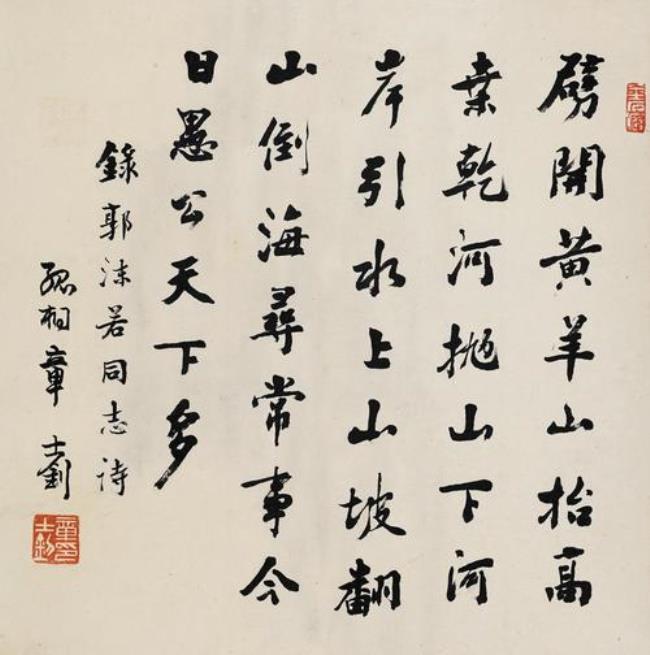 劈開黄羊山抬高
桒乾河拋山下河
岸引水上山坡翻
山倒海尋常事今
日愚公天下多
錄郭沫若同志詩
孤桐章士釗
章士釗印